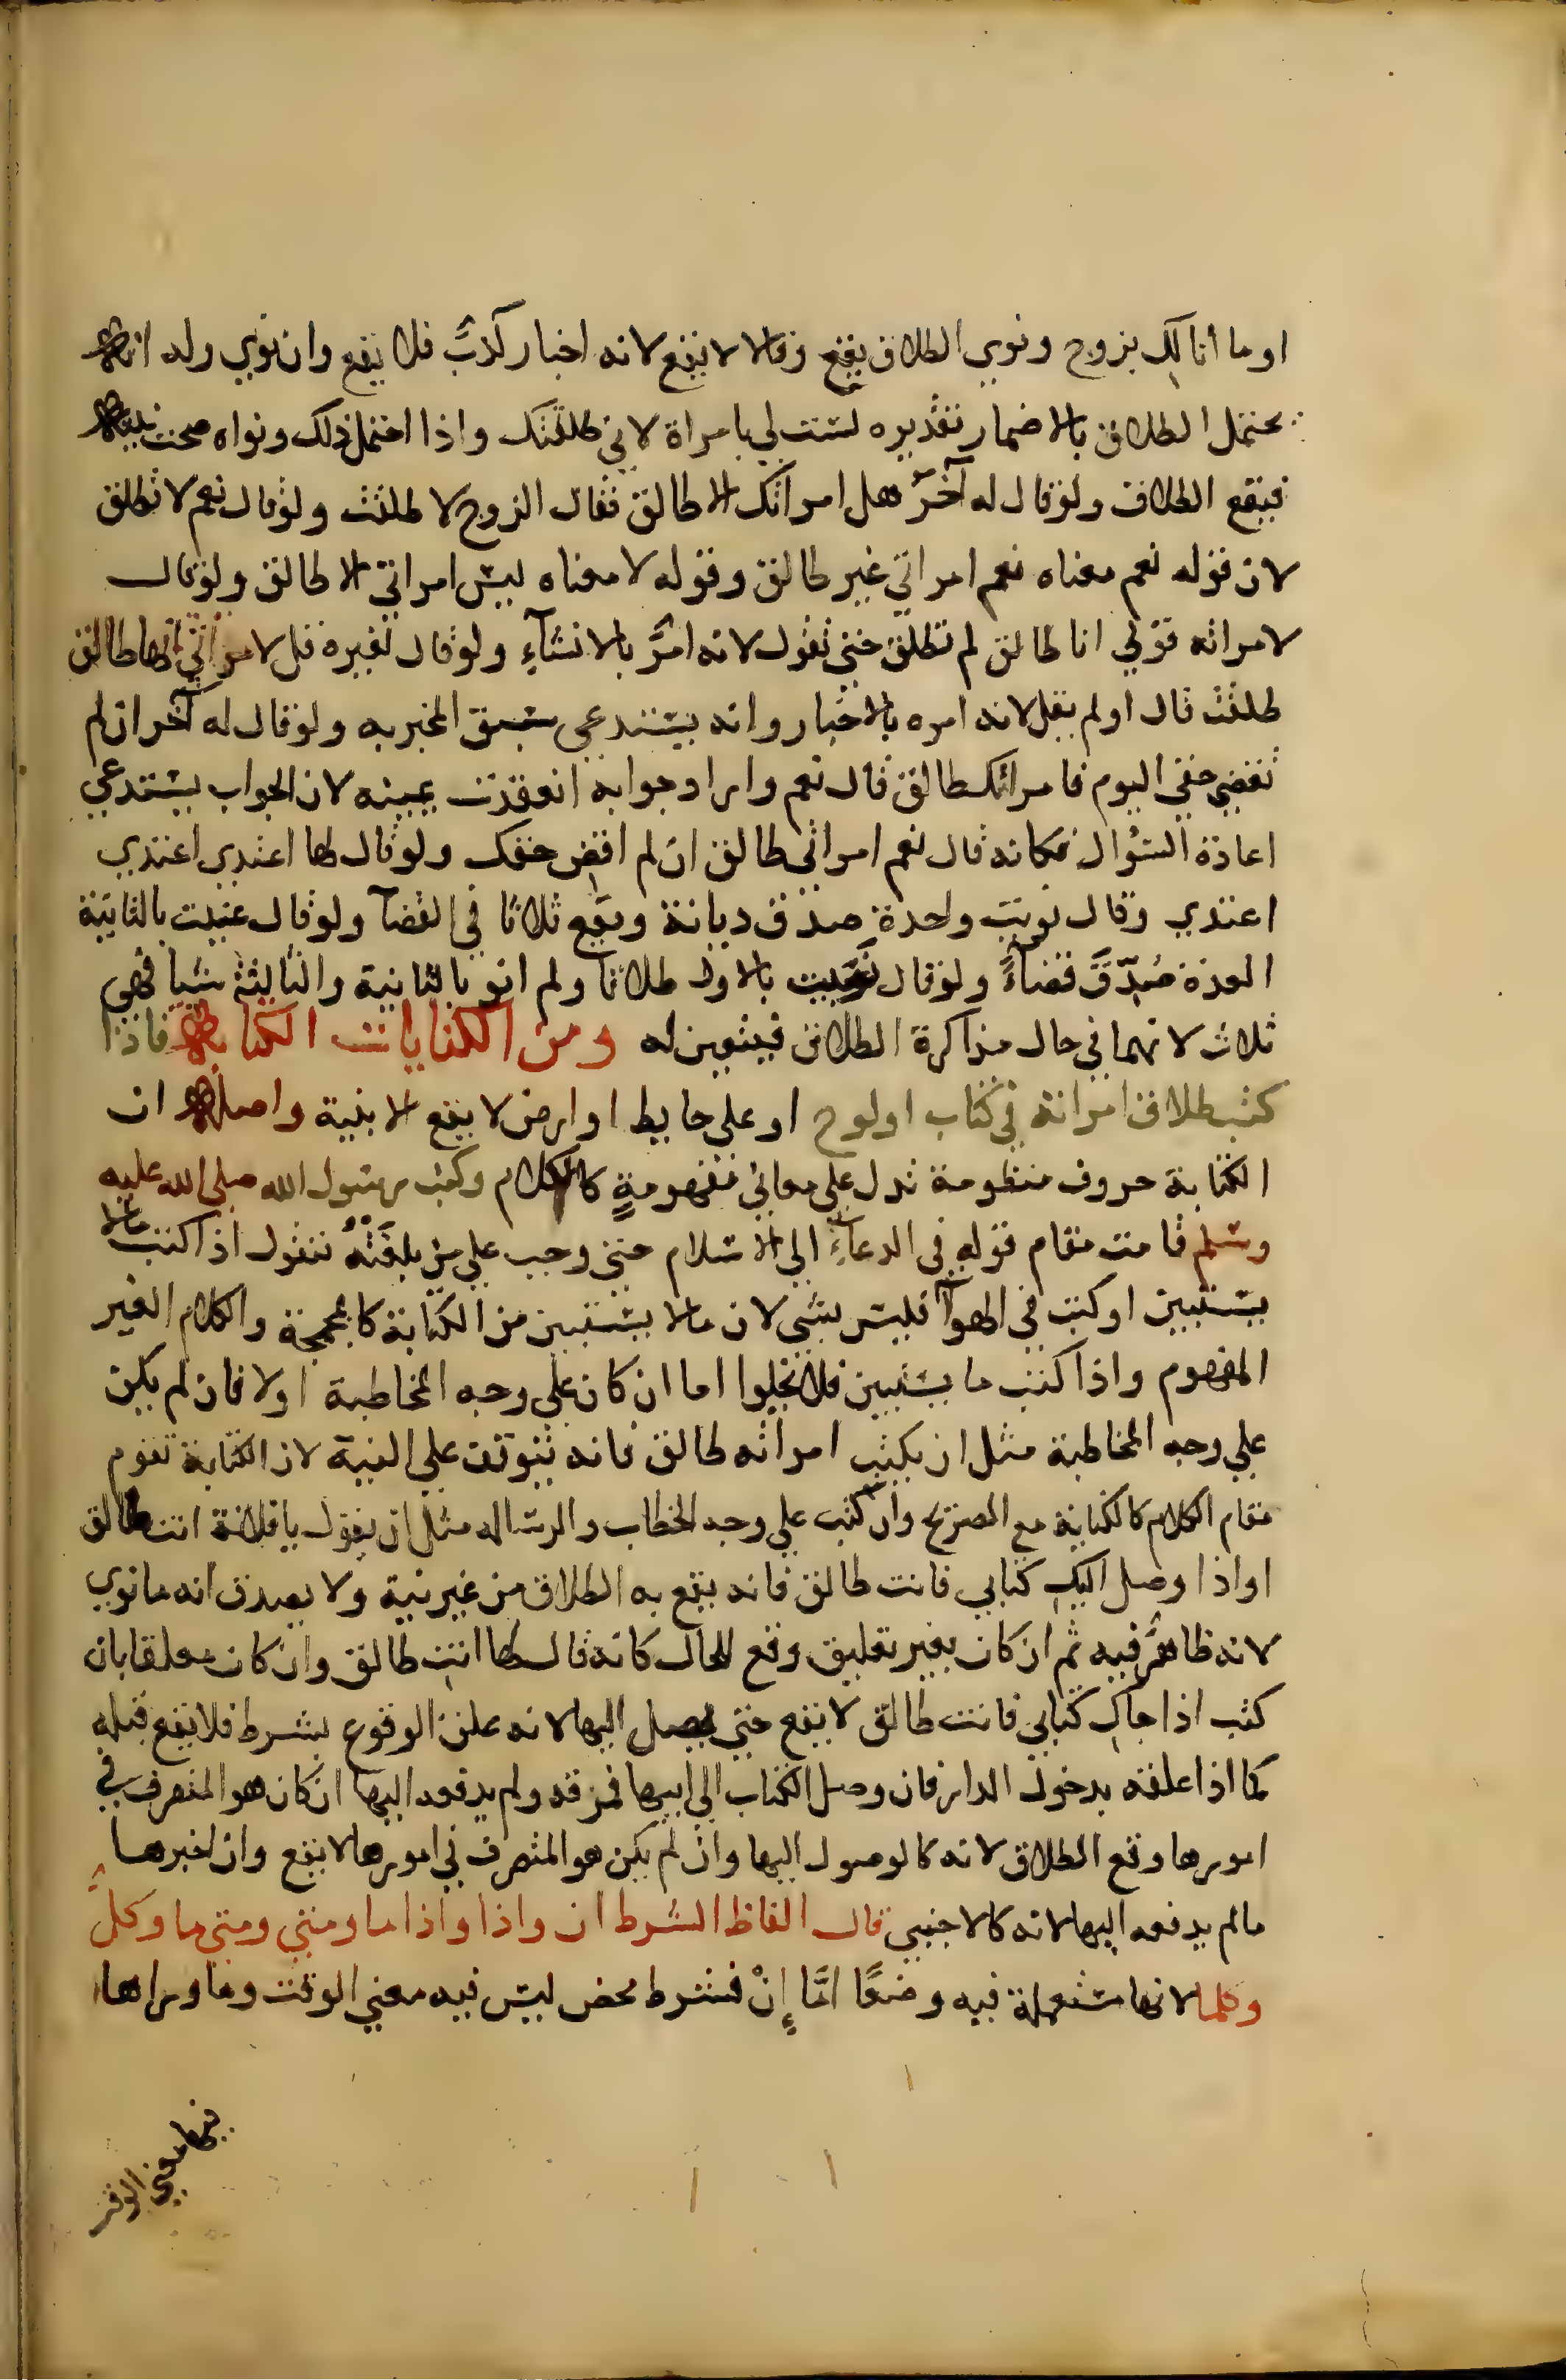 او ما أنا لكِ بزوج ونوي الطلاق يقع وقالا لا يقع لانه اخبار كذبٌ فلا يقع وان نوي وله انه
يحتمل الطلاق بالاضمار تقديره لست لي بامراة لاني طلقتك واذا احتمل ذلك ونواه صحت نيته
فيقع الطلاق ولو قال له آخرُ هل امراتك الا طالق فقال الزوج لا طلقت ولو قال نعم لا تطلق
لان قوله نعم معناه نعم امراتي غير طالق وقوله لا معناه ليس امراتي الا طالق ولو قال
لامراته قولي انا طالق لم تطلق حتى تقول لانه امرٌ بالانشآءِ ولو قال لغيره قل لامراتي انها طالق
طلقت قال او لم يقل لانه امره بالاخبار وانه يستدعي سبق المخبر به ولو قال له آخر ان لم
تقضي حقي اليوم فامراتك طالق قال نعم واراد جوابه انعقدت يمينه لان الجواب يستدعي
اعادة السؤال فكانه قال نعم امراتي طالق ان لم اقضِ حقك ولو قال لها اعتدي اعتدي
اعتدي وقال نويت واحدة صدق ديانة ويقع ثلاثا في القضآ ولو قال عنيت بالثانية
العدة صُدِّقَ قضآءً ولو قال نويت بالاولى طلاقا ولم انو بالثانية والثالثة شيا فهي
ثلاث لانهما في حال مذاكرة الطلاق فيتعين له ومن الكنايات الكتابة فاذا
كتب طلاق امراته في كتاب او لوح او علي حايط او ارض لا يقع الا بنية واصله ان
الكتابة حروف منظومة تدل علي معاني مفهومةٍ كالكلام وكتب رسول الله صلي الله عليه
وسلم قامت مقام قوله في الدعآءِ الي الاسلام حتي وجب علي من بلغَتْهُ فنقول اذا كتب مالا
يستبين او كتب في الهوآ فليس بشي لان مالا يستبين من الكتابة كالمجمجة والكلام الغير
المفهوم واذا كتب ما يستبين فلا يخلوا اما ان كان علي وجه المخاطبة اولا فان لم يكن
علي وجه المخاطبة مثل ان يكتب امراته طالق فانه يتوقف علي النية لان الكتابة تقوم
مقام الكلام كالكناية مع الصريح وان كتب علي وجه الخطاب والرسالة مثل ان يقول يا فلانة انت طالق
او اذا وصل اليكِ كتابي فانت طالق فانه يقع به الطلاق من غير نية ولا يصدق انه ما نوي
لانه ظاهرٌ فيه ثم ان كان بغير تعليق وقع للحال كانه قال لها انتِ طالق وان كان معلقا بان
كتب اذا جاكِ كتابي فانت طالق لا يقع حتي يصل اليها لانه علق الوقوع بشرط فلا يقع قبله
كما اذا علقه بدخول الدار فان وصل الكتاب الي ابيها فمزقه ولم يدفعه اليها ان كان هو المتصرف في
امورها وقع الطلاق لانه كالوصول اليها وان لم يكن هو المتصرف في امورها لا يقع وان اخبرها
مالم يدفعه اليها لانه كالاجنبي قال الفاظ الشرط ان واذا واذا ما ومتي ومتي ما وكلُّ
وكلما لانها مستعملة فيه وضعًا امَّا إِنْ فشرط محض ليس فيه معني الوقت وما وراها
فيها معني الوقت